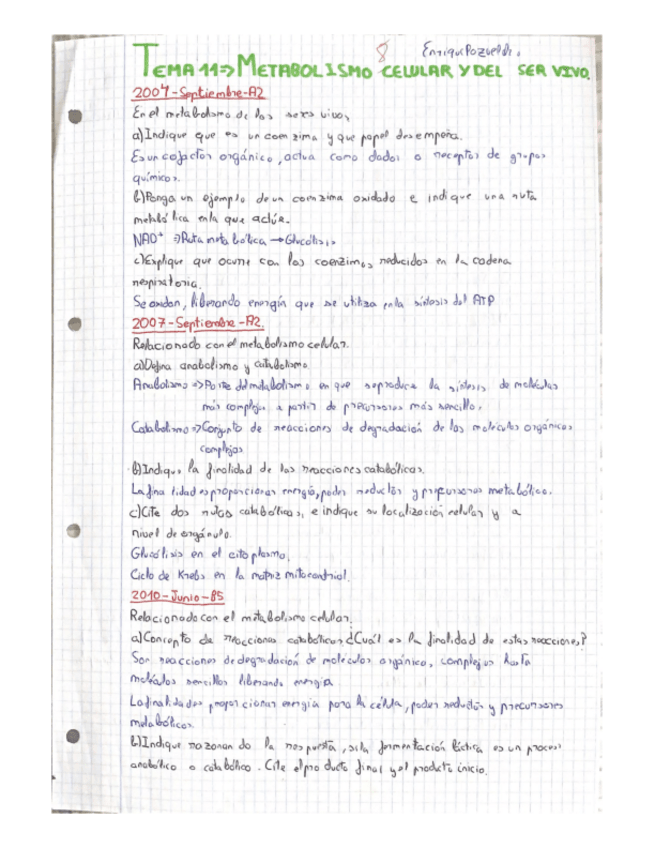 8 Enrique Pozuelo.
TEMA 11⇒ METABOLISMO CELULAR Y DEL SER VIVO.
2007-Septiembre-A2
En el metabolismo de los seres vivos,
a)Indique que es un coenzima y que papel desempeña.
Es un cofactor orgánico, actua como dador o receptor de grupos
químicos.
b)Ponga un ejemplo de un coenzima oxidado e indique una ruta
metabólica en la que actúe.
NAD+ ⇒Ruta metabólica →Glucólisis
c)Explique que ocurre con los coenzimas reducidos en la cadena
respiratoria.
Se oxidan, liberando energía que se utiliza en la síntesis del ATP
2007-Septiembre-A2.
Relacionado con el metabolismo celular.
a)Defina anabolismo y catabolismo.
Anabolismo ⇒Parte del metabolismo en que se produce la síntesis de moléculas
más complejas a partir de precursores más sencillos.
Catabolismo⇒Conjunto de reacciones de degradación de las moléculas orgánicas
complejas
b)Indique la finalidad de las reacciones catabólicas.
La finalidad es proporcionar energía, poder reductor y precursores metabólicos.
c)Cite dos rutas catabólicas, e indique su localización celular y a
nivel de orgánulo.
Glucólisis en el citoplasma.
Ciclo de Krebs en la matriz mitocondrial.
2010-Junio-B5
Relacionado con el metabolismo celular.
a)Concepto de reacciones catabólicas ¿Cuál es la finalidad de estas reacciones?
Son reacciones de degradación de moléculas orgánicas, complejas hasta
moléculas sencillas liberando energía
La finalidad es proporcionar energía para la célula, poder reductor y precursores
metabólicos.
b)Indique razonando la respuesta, si la fermentación láctica es un proceso
anabólico o catabólico. Cite el producto final y el producto inicio.